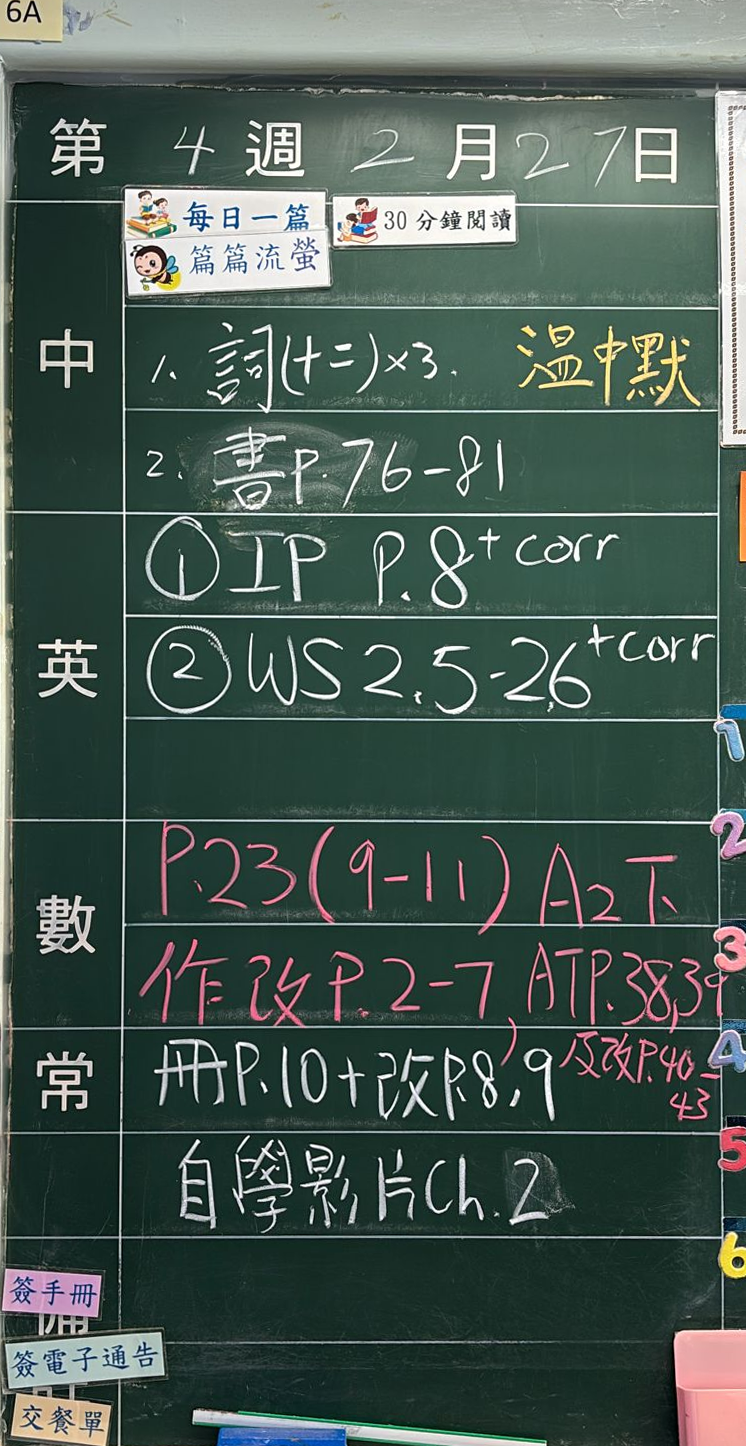 6A
第 4 週 2 月 27 日
每日一篇 30分鐘閱讀
篇篇流螢
中
1. 詞(十二)×3. 溫中默
2. 書P.76-81
英
① IP P.8 + corr
② WS 2.5-2.6 + corr
數
P.23(9-11) A2下
作改P.2-7, ATP.38,39
及改P.40-43
常
冊P.10+改P.8,9
自學影片Ch.2
簽手冊
簽電子通告
交餐單
1
2
3
4
5
6